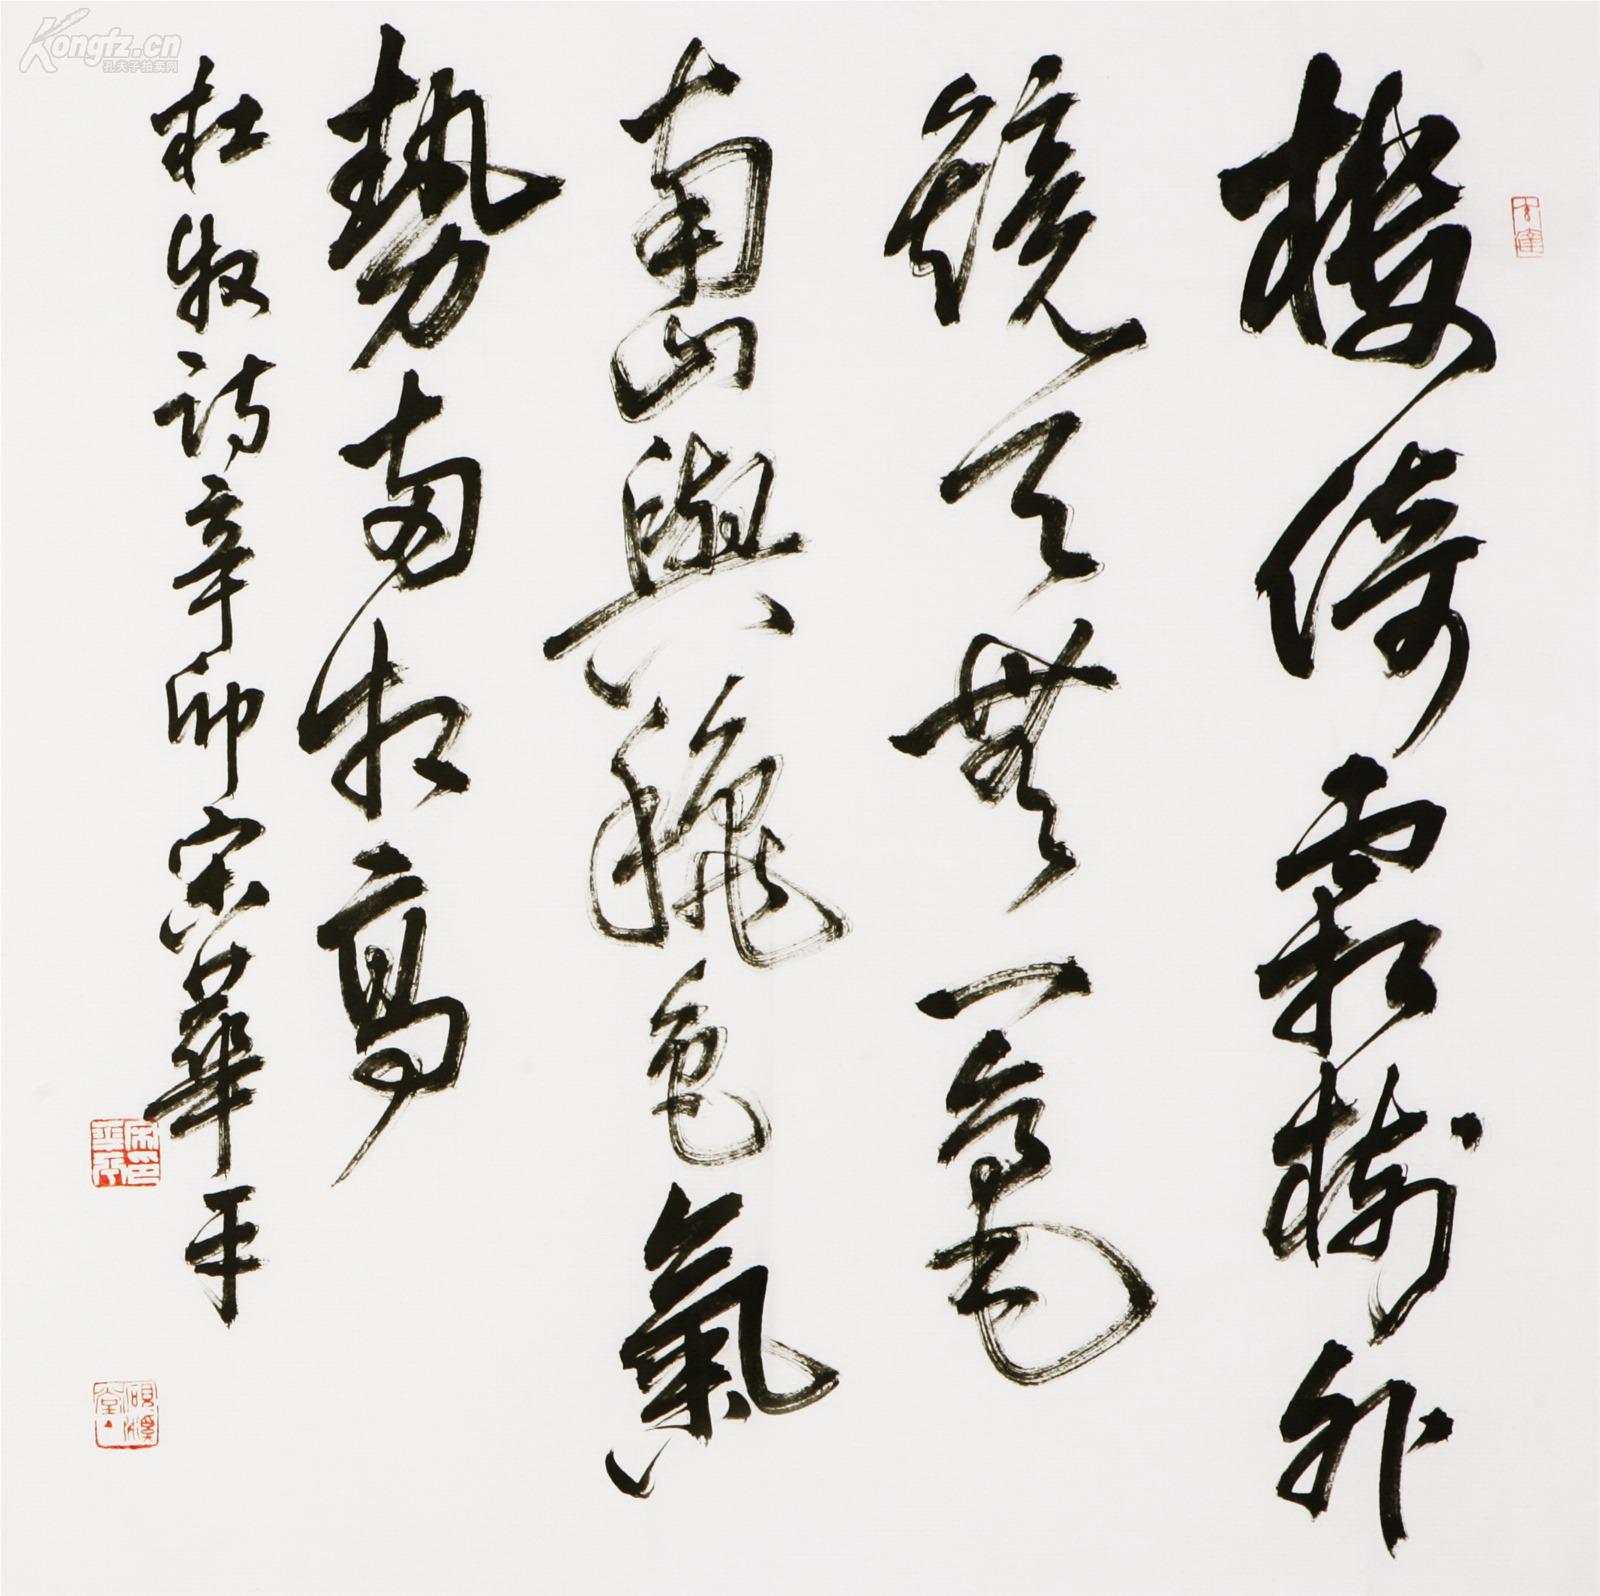 樓倚霜樹外
鏡天無一毫
南山與秋色氣
勢兩相高
杜牧詩辛卯宋華平
Kongfz.cn
孔夫子拍卖网